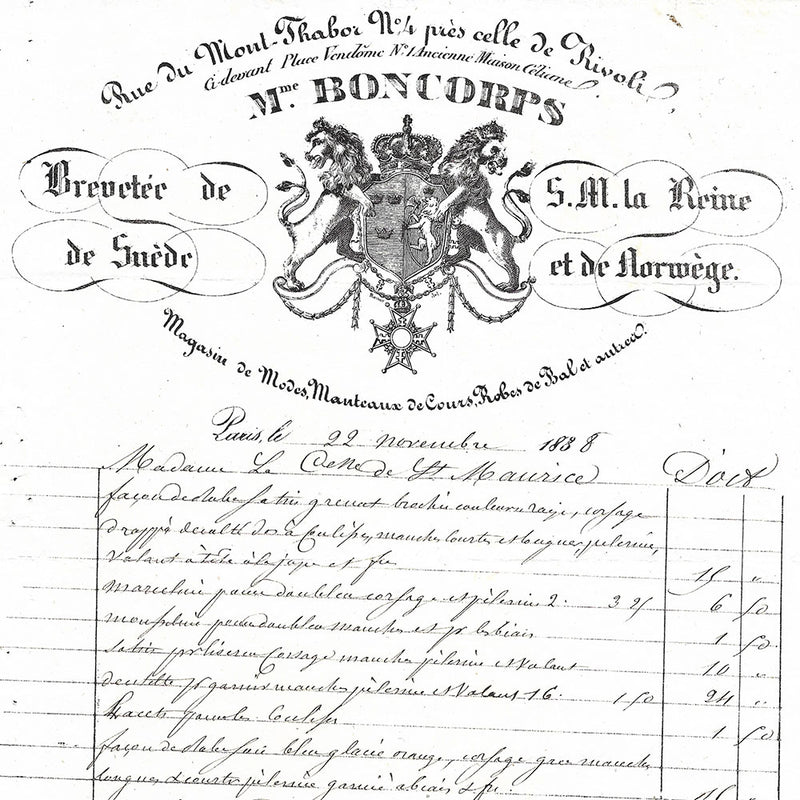 Rue du Mont-Thabor N°4 près celle de Rivoli,
Ci-devant Place Vendôme N°1 Ancienne Maison Céliane.
Mme BONCORPS
Brevetée de S.M. la Reine
de Suède et de Norwège.
Magasin de Modes, Manteaux de Cours, Robes de Bal et autres.
Paris, le 22 novembre 1838
Madame La Ctesse de St Maurice Doit
façon de robe satin grenat broché couleurs raye, corsage
drappé décolté dos à Coulisses, manches courtes et longues, pelerine,
volant à tête à la jupe et fre 15 "
marceline pour doublen corsage et pelerine 2. 3 25 6 50
mousseline pour doublen manches et pr les biais 1 50
Satin pr liseren Corsage manches pelerine et Volant 10 "
dentelle pr garnir manches pelerine et Volant 16. 1 50 24 "
Lacets pour les Coulisses 1 50
façon de robe soie bleu glacé orange, corsage grec manches
longues & courtes pelerine garnie à biais & fre 15 "